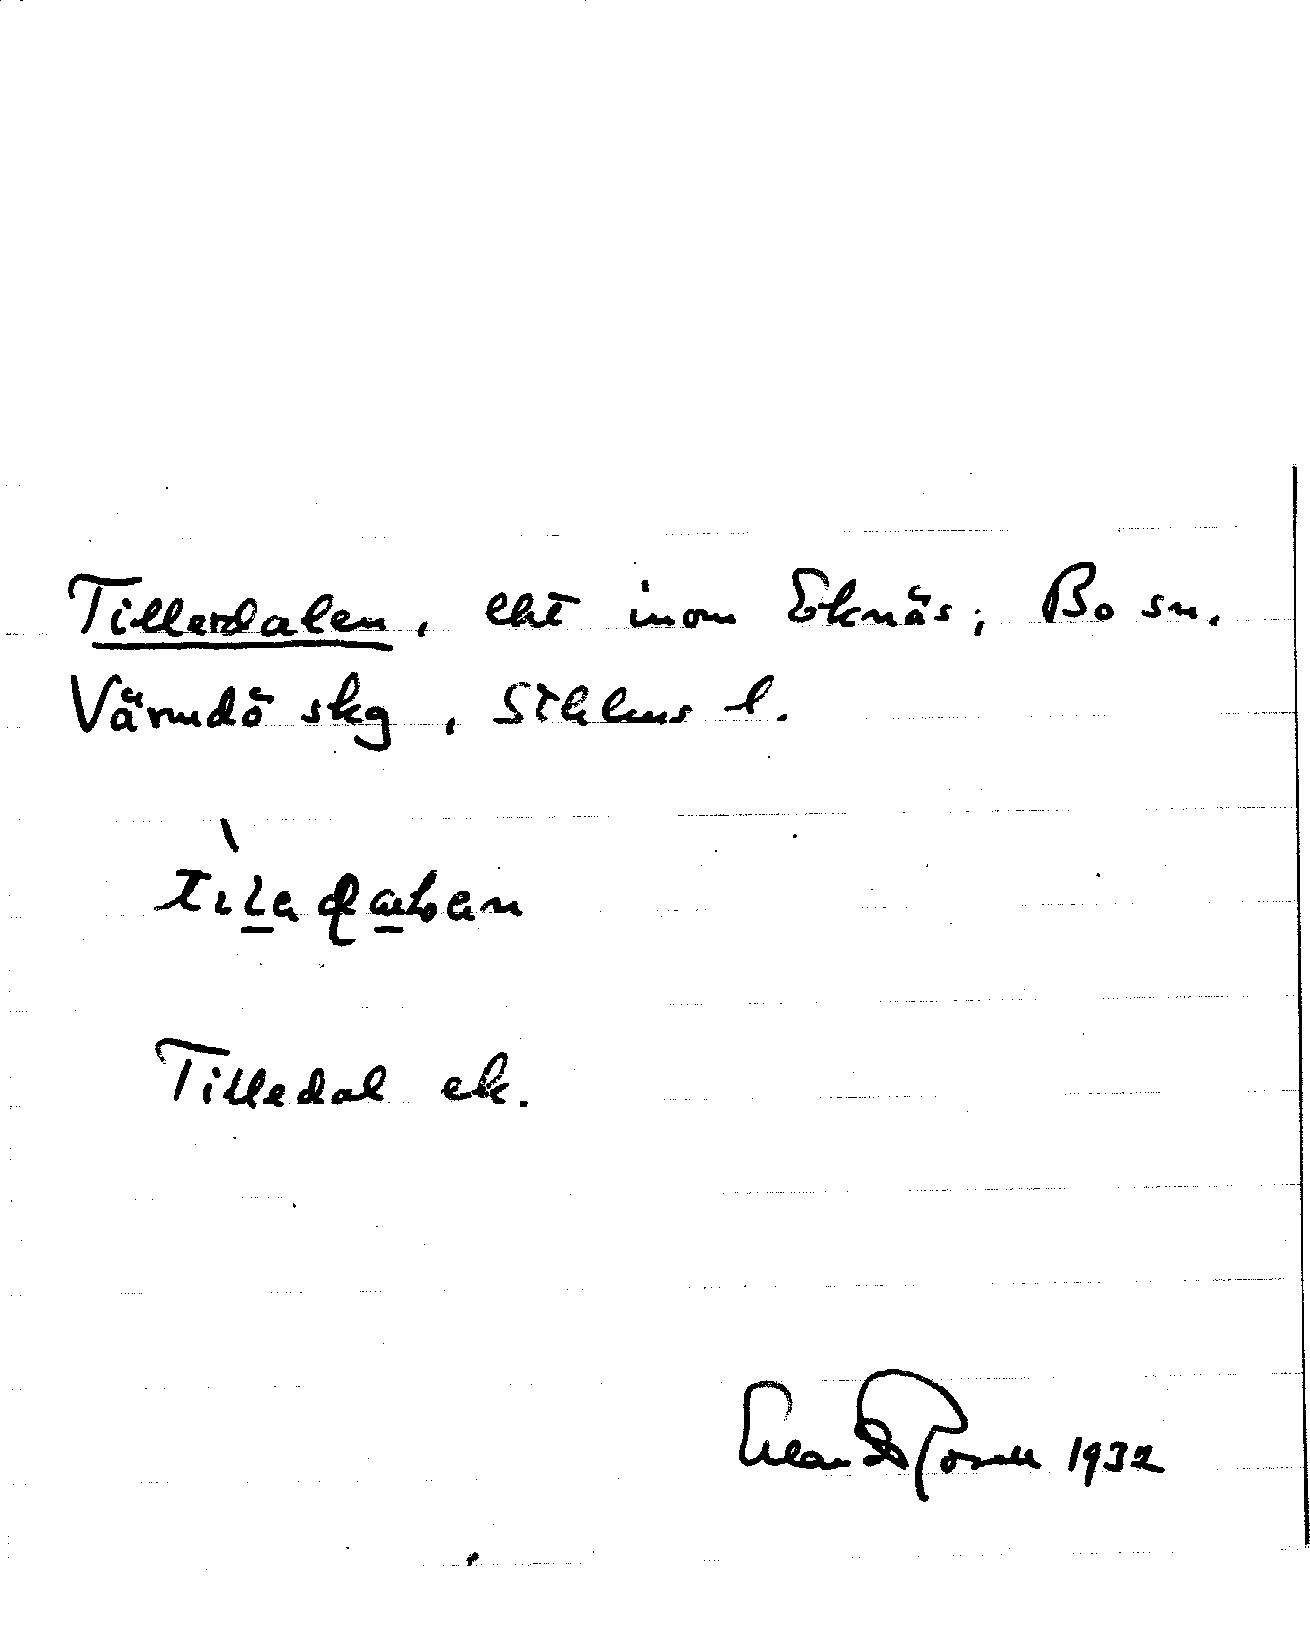 Tillerdalen, lht inom Eknäs, Bo sn.
Värmdö skg, Sthlms l.
Tilledal ek.
Erland Rosell 1932